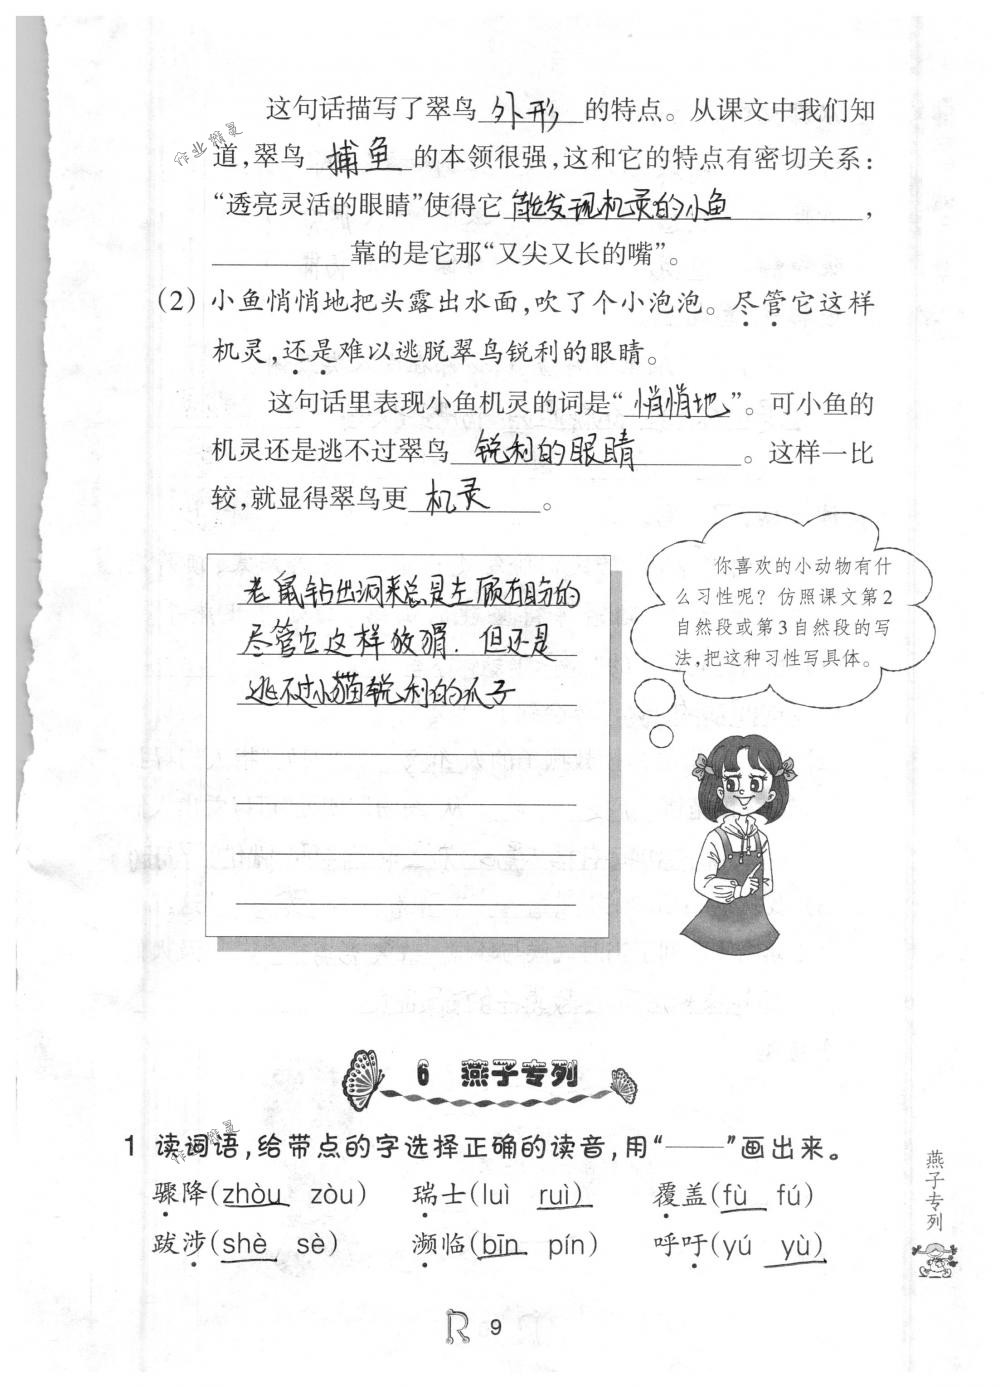 这句话描写了翠鸟 外形 的特点。从课文中我们知
道,翠鸟 捕鱼 的本领很强,这和它的特点有密切关系:
“透亮灵活的眼睛”使得它 能发现机灵的小鱼 ,
靠的是它那“又尖又长的嘴”。
(2) 小鱼悄悄地把头露出水面,吹了个小泡泡。尽管它这样
机灵,还是难以逃脱翠鸟锐利的眼睛。
这句话里表现小鱼机灵的词是“悄悄地”。可小鱼的
机灵还是逃不过翠鸟 锐利的眼睛 。这样一比
较,就显得翠鸟更 机灵 。
老鼠钻出洞来总是左顾右盼的
尽管它这样狡猾.但还是
逃不过小猫锐利的爪子
你喜欢的小动物有什
么习性呢?仿照课文第2
自然段或第3自然段的写
法,把这种习性写具体。
作业精灵
6 燕子专列
1 读词语,给带点的字选择正确的读音,用“——”画出来。
骤降(zhòu zòu) 瑞士(luì ruì) 覆盖(fù fú)
跋涉(shè sè) 濒临(bīn pín) 呼吁(yú yù)
作业精灵
燕子专列
R 9